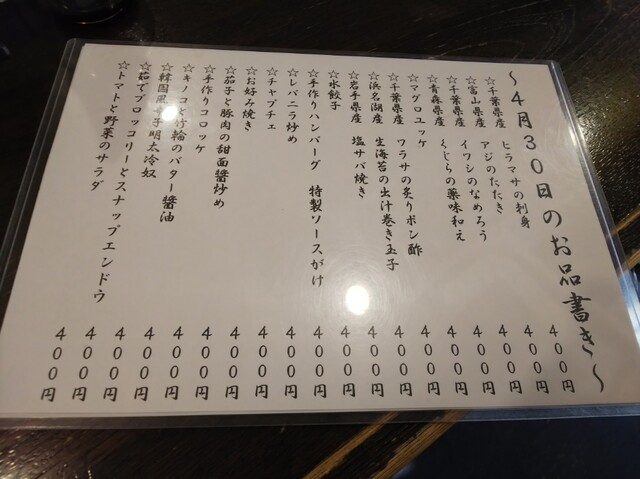 ～4月30日のお品書き～
☆千葉県産 ヒラマサの刺身 400円
☆富山県産 アジのたたき 400円
☆千葉県産 イワシのなめろう 400円
☆青森県産 くじらの薬味和え 400円
☆マグロユッケ 400円
☆千葉県産 ワラサの炙りポン酢 400円
☆浜名湖産 生海苔の出汁巻き玉子 400円
☆岩手県産 塩サバ焼き 400円
☆水餃子 400円
☆手作りハンバーグ 特製ソースがけ 400円
☆レバニラ炒め 400円
☆チャプチェ 400円
☆お好み焼き 400円
☆茄子と豚肉の甜面醤炒め 400円
☆手作りコロッケ 400円
☆キノコと竹輪のバター醤油 400円
☆韓国風辛子明太冷奴 400円
☆茹でブロッコリーとスナップエンドウ 400円
☆トマトと野菜のサラダ 400円